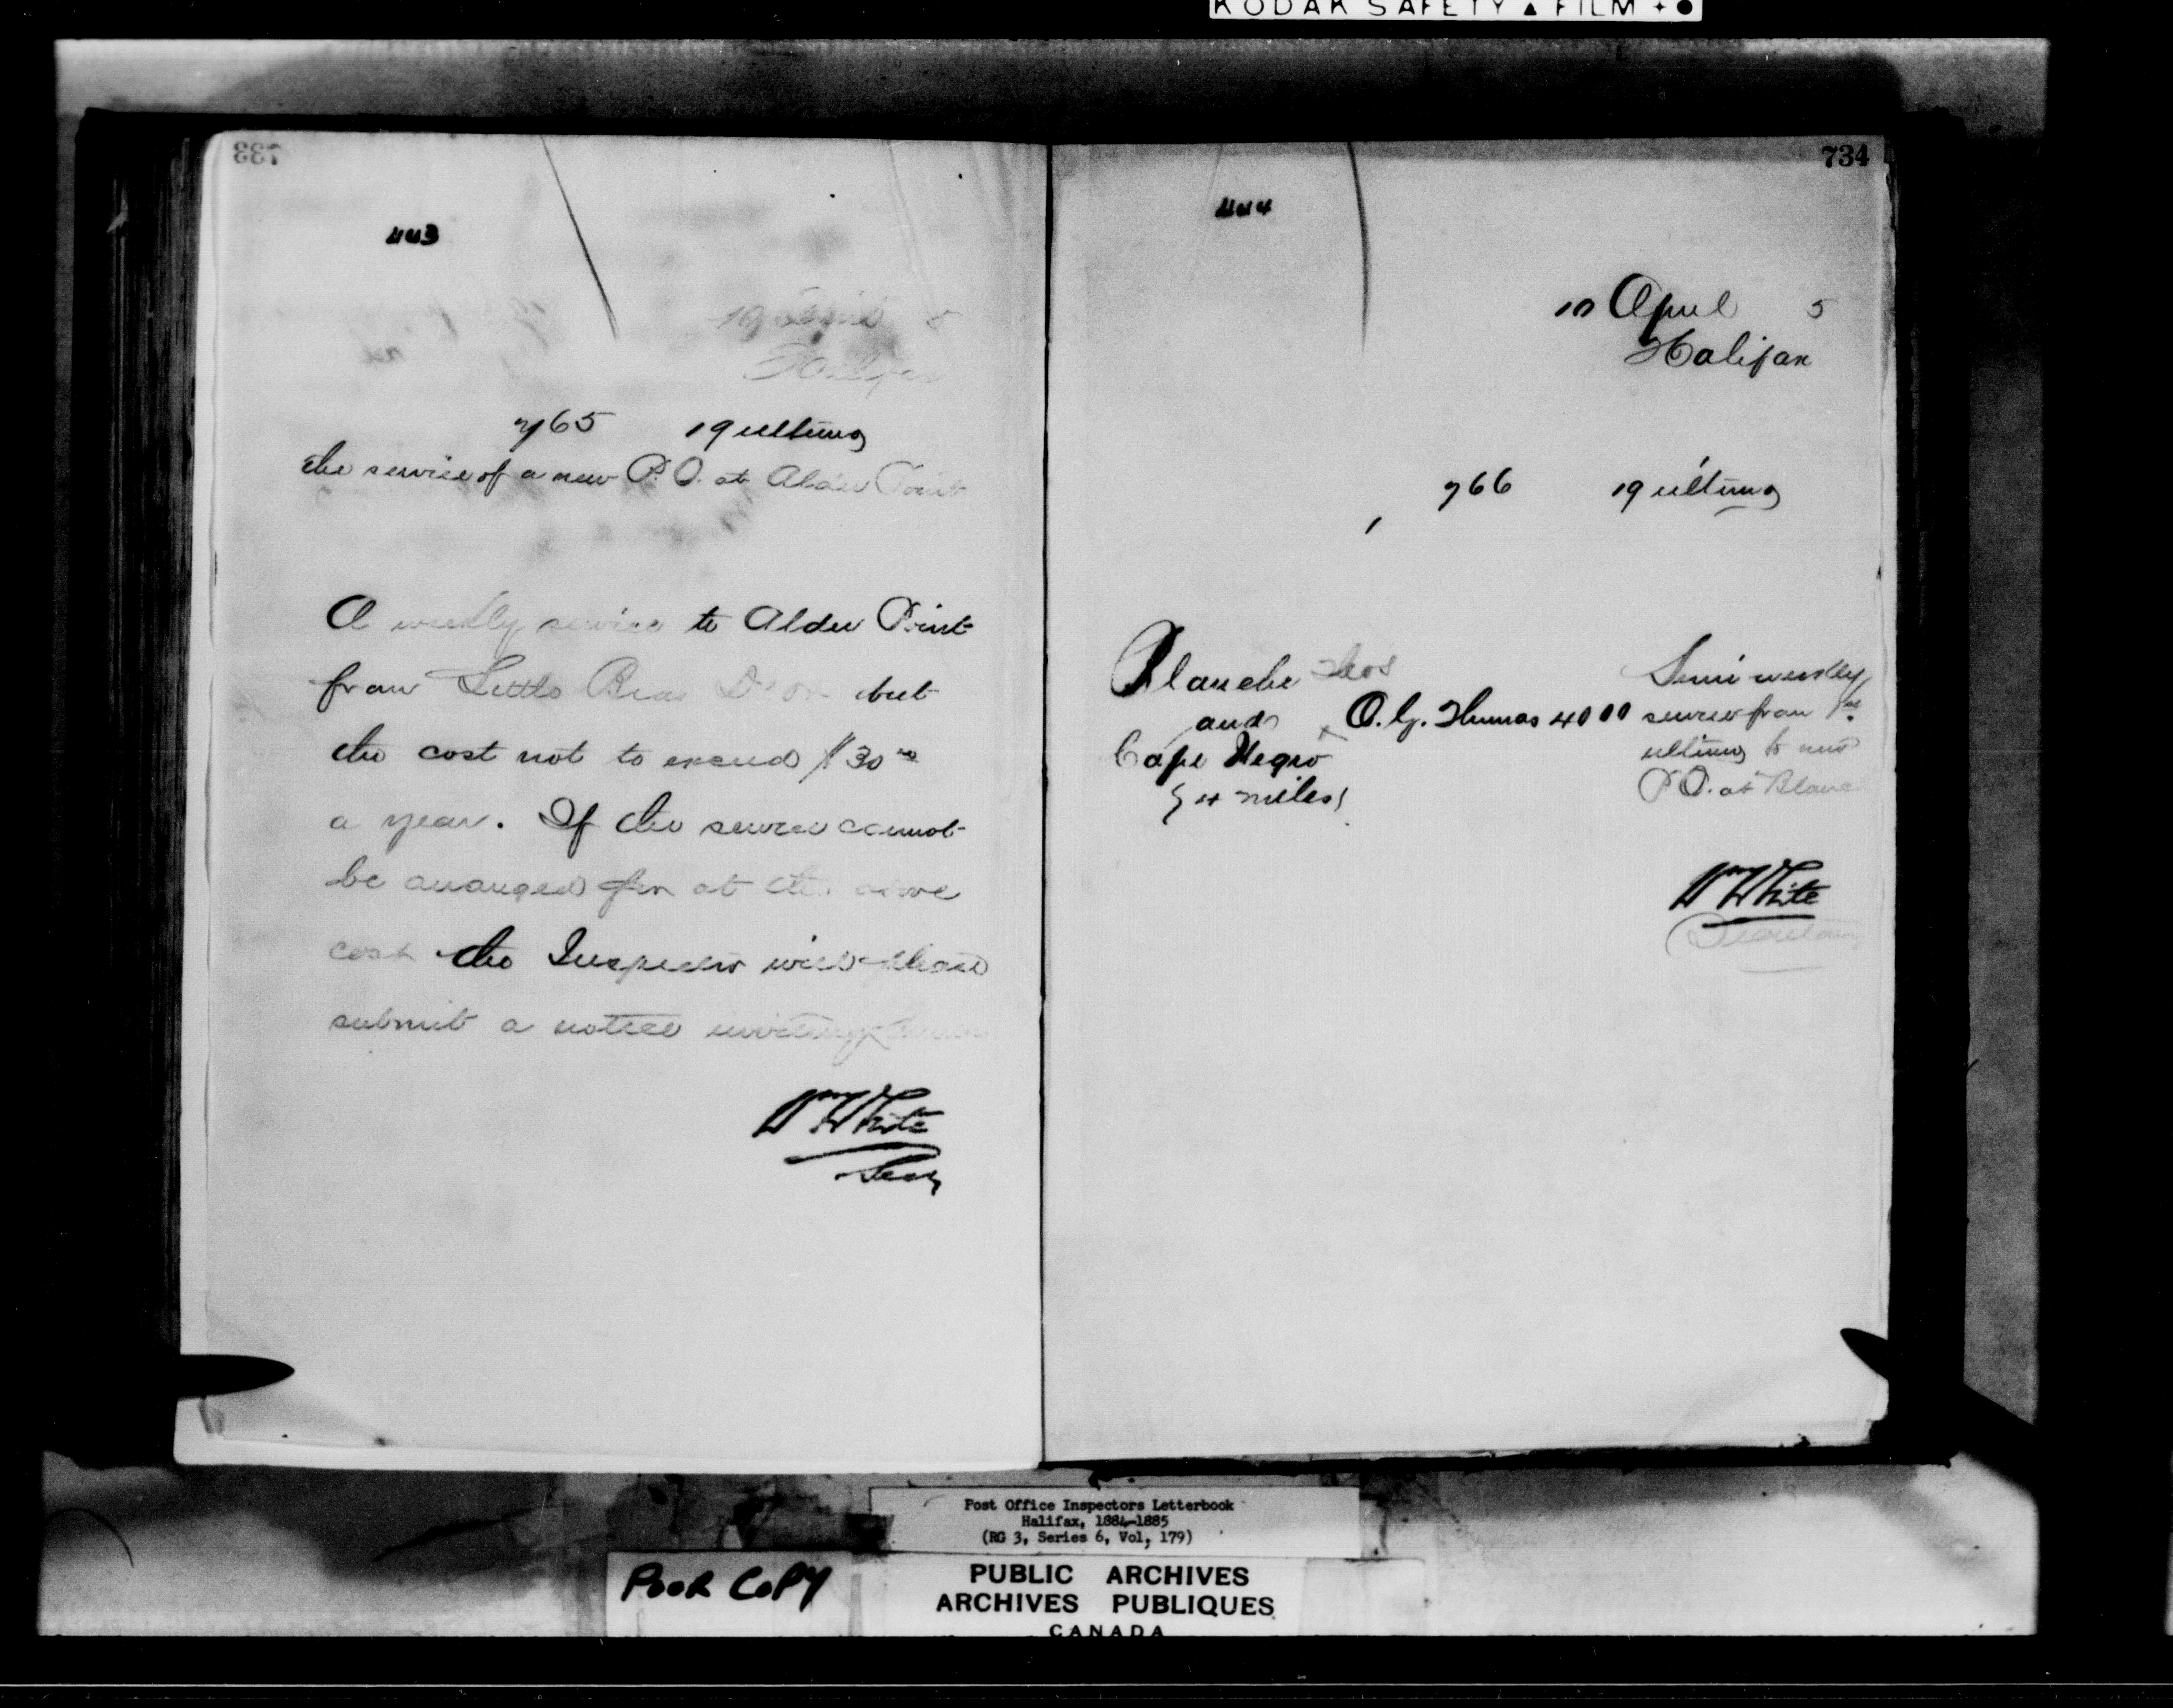 KODAK SAFETY ▲ FILM
733
443
19 April 5
Halifax
765 19 ultimo
the service of a new P.O. at Alder Point
A weekly service to Alder Point
from Little Bras D'or but
the cost not to exceed $30 00
a year. If the service cannot
be arranged for at the above
cost the Inspector will please
submit a notice inviting
Wm White
Secy
734
444
10 April 5
Halifax
766 19 ultimo
Blanche
and
Cape Negro
4 miles
Thos
O. G. Thomas 40 00
Semi weekly
service from 1st
ultimo to new
P.O. at Blanche
Wm White
Secretary
Post Office Inspectors Letterbook
Halifax, 1884-1885
(RG 3, Series 6, Vol, 179)
POOR COPY
PUBLIC ARCHIVES
ARCHIVES PUBLIQUES
CANADA